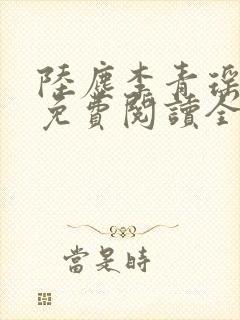 陸塵李青瑤
免費閱讀全
當是時